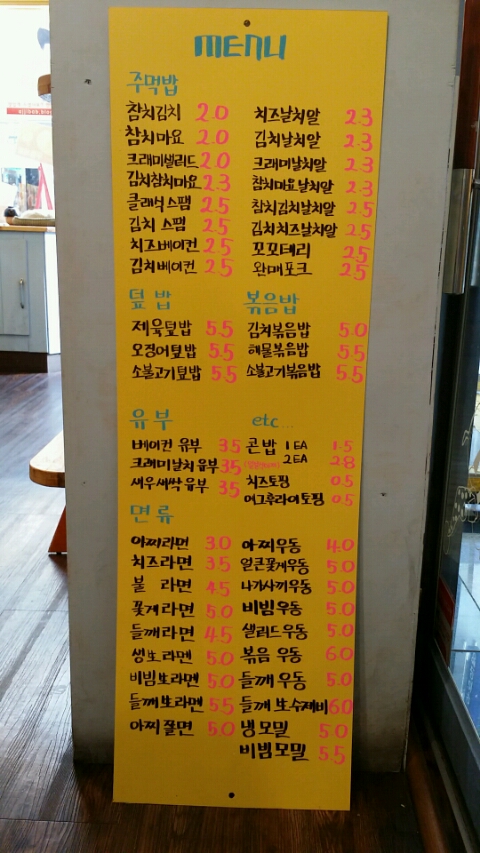 MENU
주먹밥
참치김치 2.0
참치마요 2.0
크래미샐러드 2.0
김치참치마요 2.3
클래식스팸 2.5
김치 스팸 2.5
치즈베이컨 2.5
김치베이컨 2.5
치즈날치알 2.3
김치날치알 2.3
크래미날치알 2.3
참치마요날치알 2.3
참치김치날치알 2.5
김치치즈날치알 2.5
꼬꼬데리 2.5
완매포크 2.5
덮밥
제육덮밥 5.5
오징어덮밥 5.5
소불고기덮밥 5.5
볶음밥
김치볶음밥 5.0
해물볶음밥 5.5
소불고기볶음밥 5.5
유부
베이컨 유부 3.5
크래미날치 유부 3.5
새우새싹 유부 3.5
etc...
콘밥 1EA 1.5
2EA 2.8
치즈토핑 0.5
에그후라이토핑 0.5
면류
아찌라면 3.0
치즈라면 3.5
불 라면 4.5
꽃게라면 5.0
들깨라면 4.5
생生라멘 5.0
비빔生라멘 5.0
들깨生라멘 5.5
아찌쫄면 5.0
아찌우동 4.0
얼큰꽃게우동 5.0
나가사끼우동 5.0
비빔우동 5.0
샐러드우동 5.0
볶음 우동 6.0
들깨 우동 5.0
들깨 生수제비 6.0
냉모밀 5.0
비빔모밀 5.5